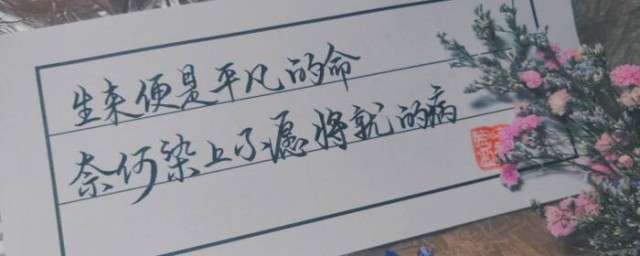 生来便是平凡的命
奈何染上不愿将就的病